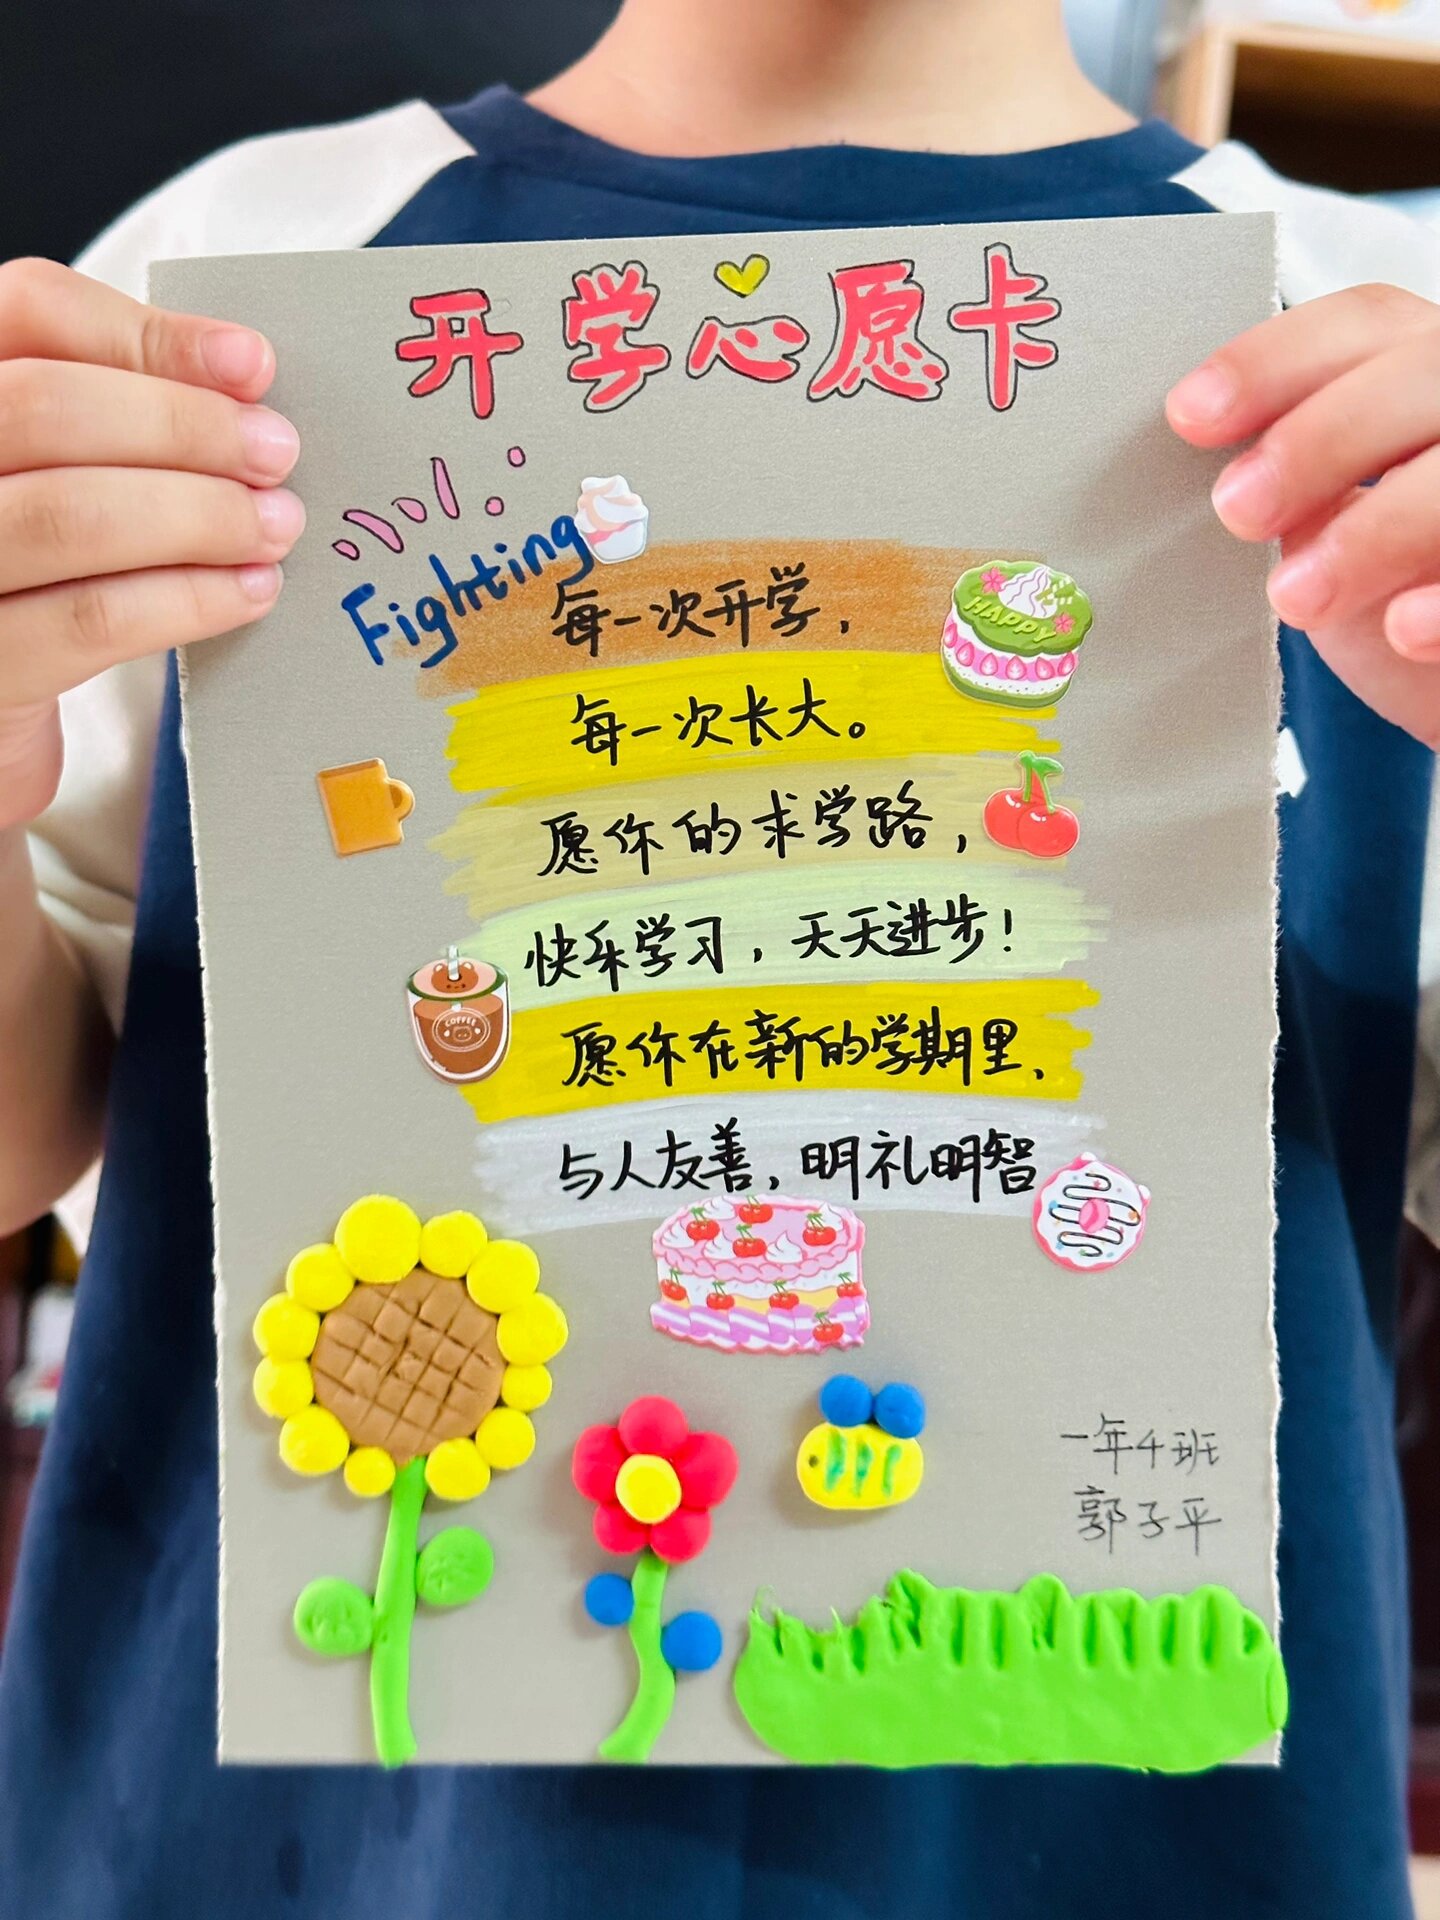 开学心愿卡
Fighting
每一次开学,
HAPPY
每一次长大。
愿你的求学路,
快乐学习,天天进步!
COFFEE
愿你在新的学期里、
与人友善,明礼明智
一年4班
郭子平